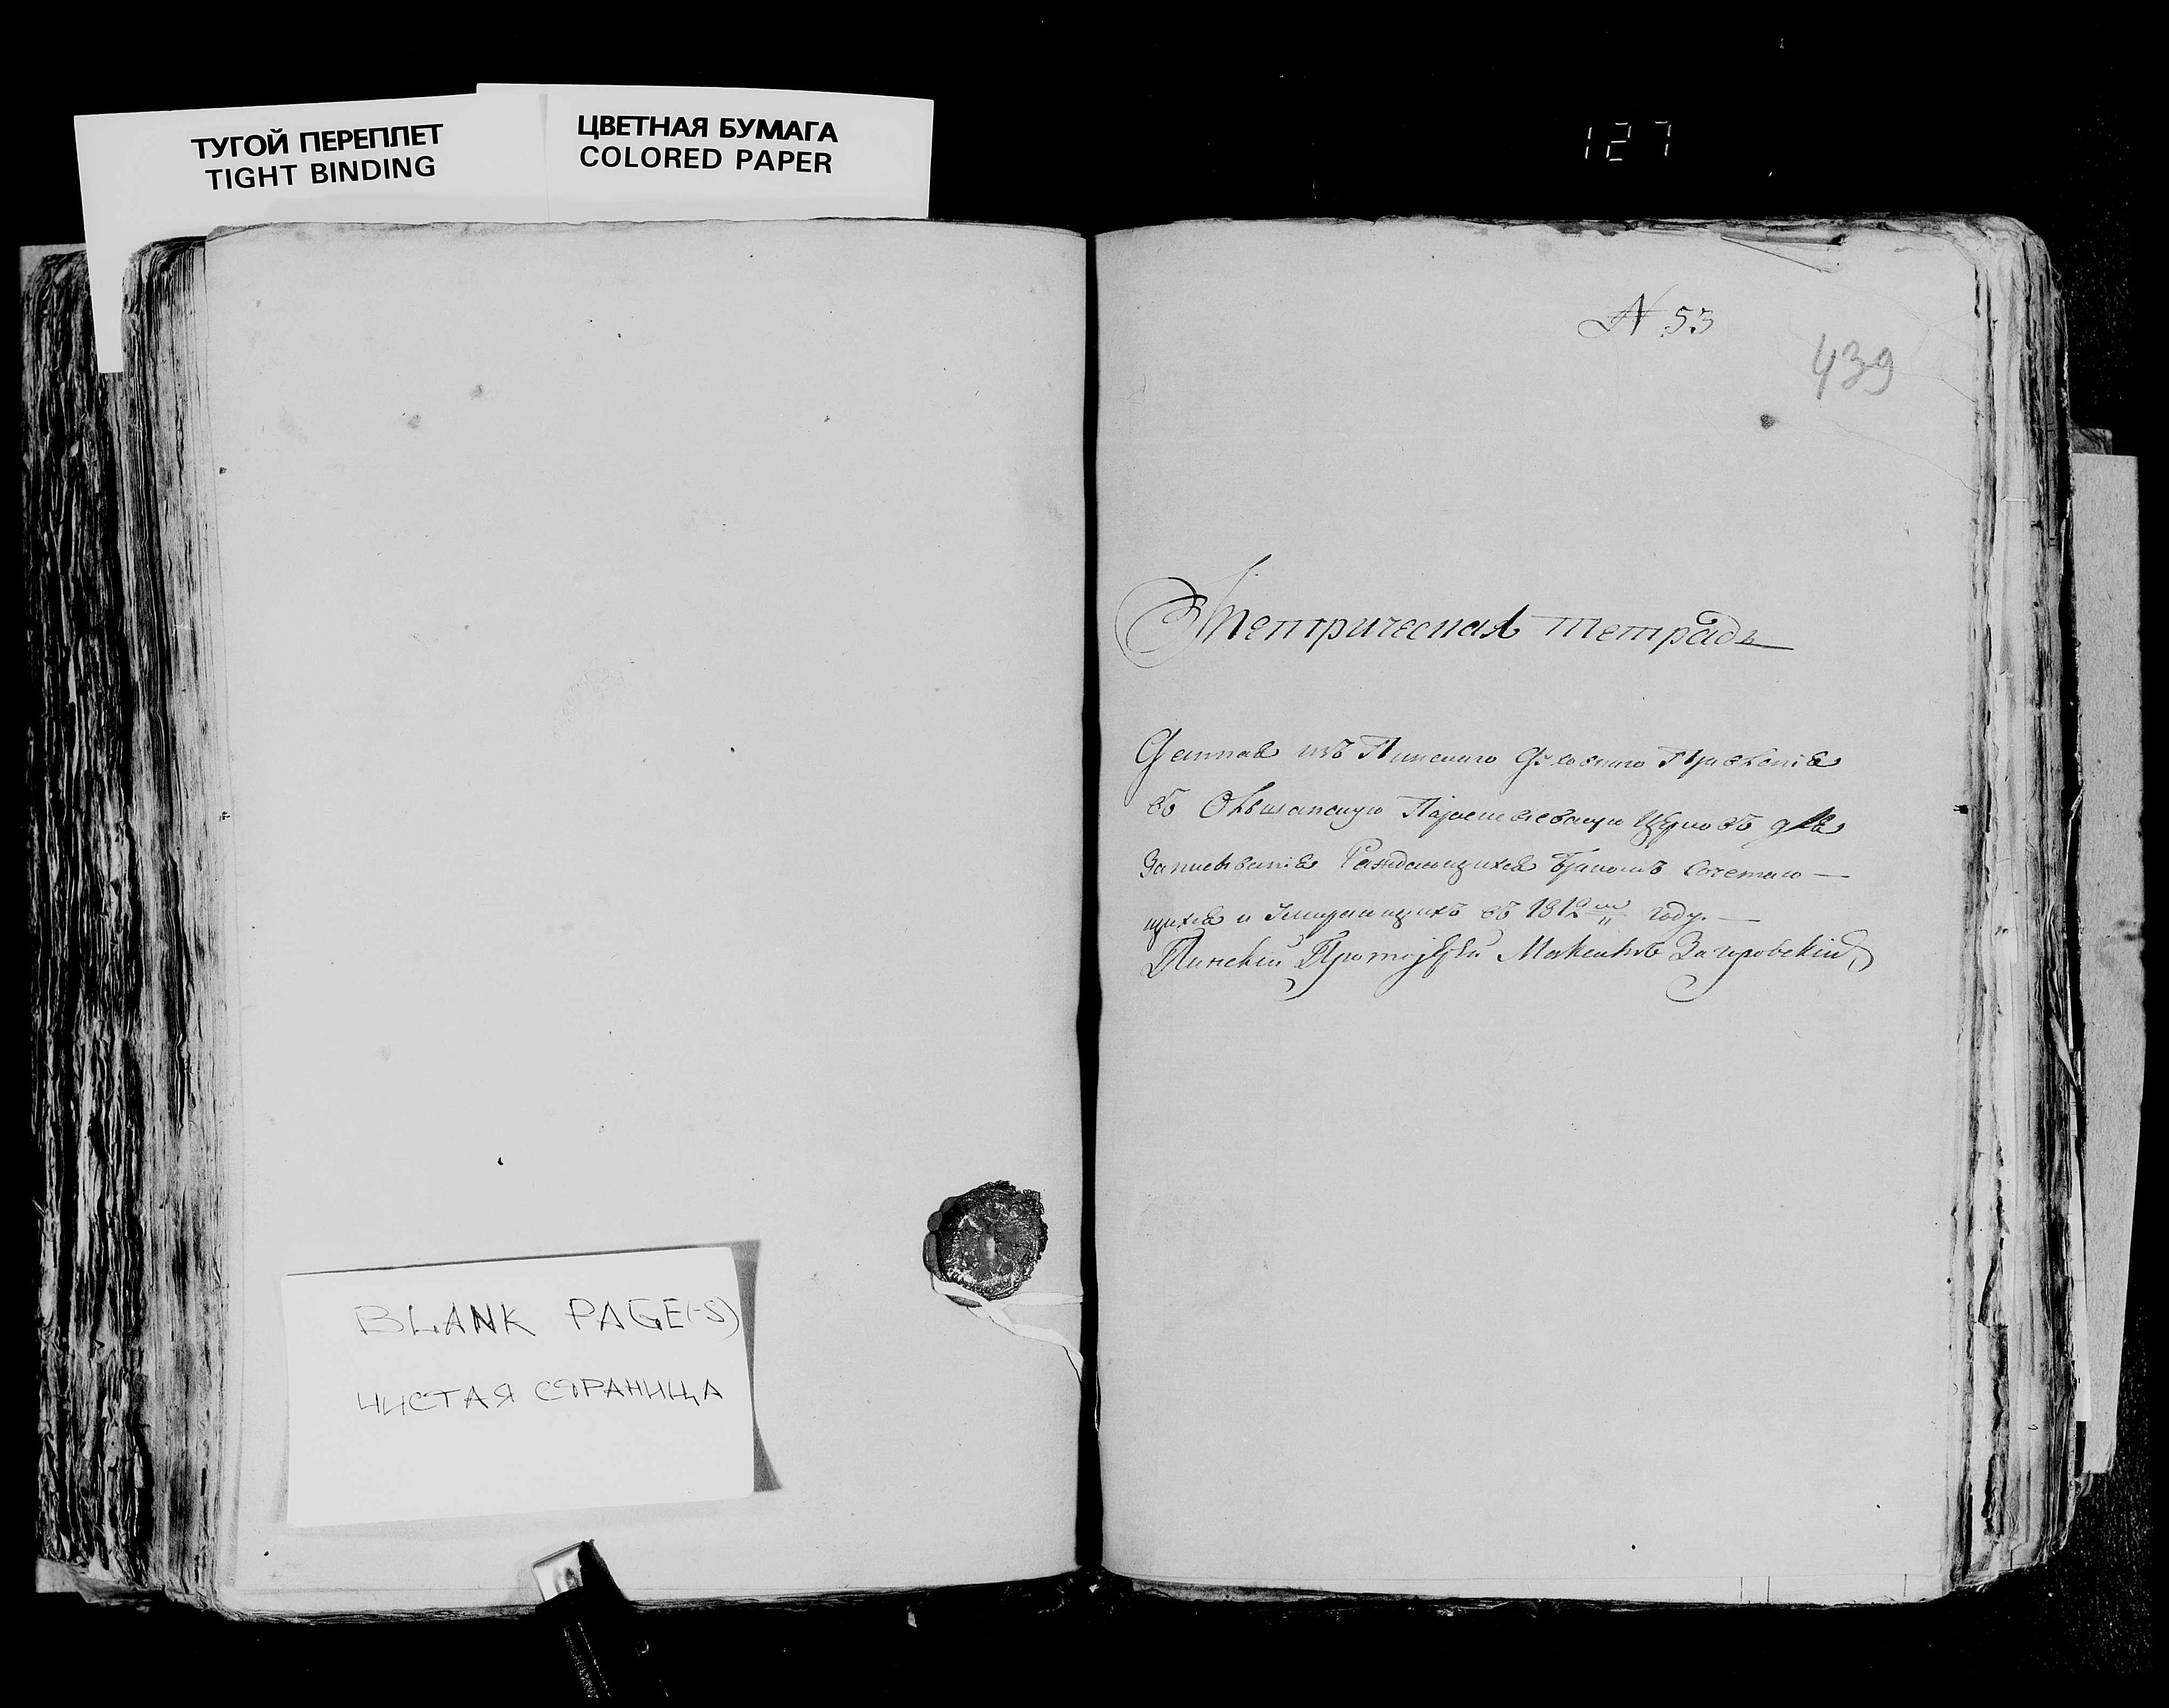 ТУГОЙ ПЕРЕПЛЕТ
TIGHT BINDING
ЦВЕТНАЯ БУМАГА
COLORED PAPER
127
N 53
439
Метрическая тетрадь
Данная изъ Пинского Духовного Правленія
въ Ольшанскую Параскевіевскую Церковъ для
Записыванія Раждающихся Бракомъ Сочетаю —
щихся и Умирающихъ въ 1812 году. —
Пинскій Протоіерей Загоровскій
BLANK PAGE(-S)
ЧИСТАЯ СТРАНИЦА